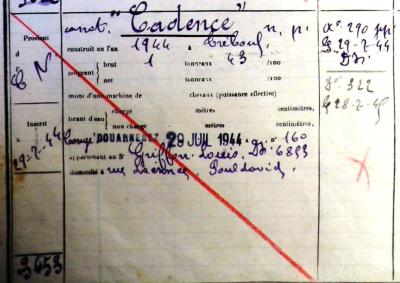 const. "Cadence" n. p.
Provient
construit en l'an 1944 à Tréboul
d
C N.
jaugeant
brut 1 tonneaux 43 /100
net tonneaux /100
muni d'une machine de chevaux (puissance effective)
brant d'eau
en charge mètres centimètres,
non chargé mètres centimètres,
Inscrit
29-7-44
Congé DOUARNENEZ 29 JUIL 1944 n° 160
appartenant au Sr Griffon Louis. Dz 6853
domicilié à rue Pouldavid.
3653
n° 290
29-7-44
Dz.
Dz 322
28-2-45